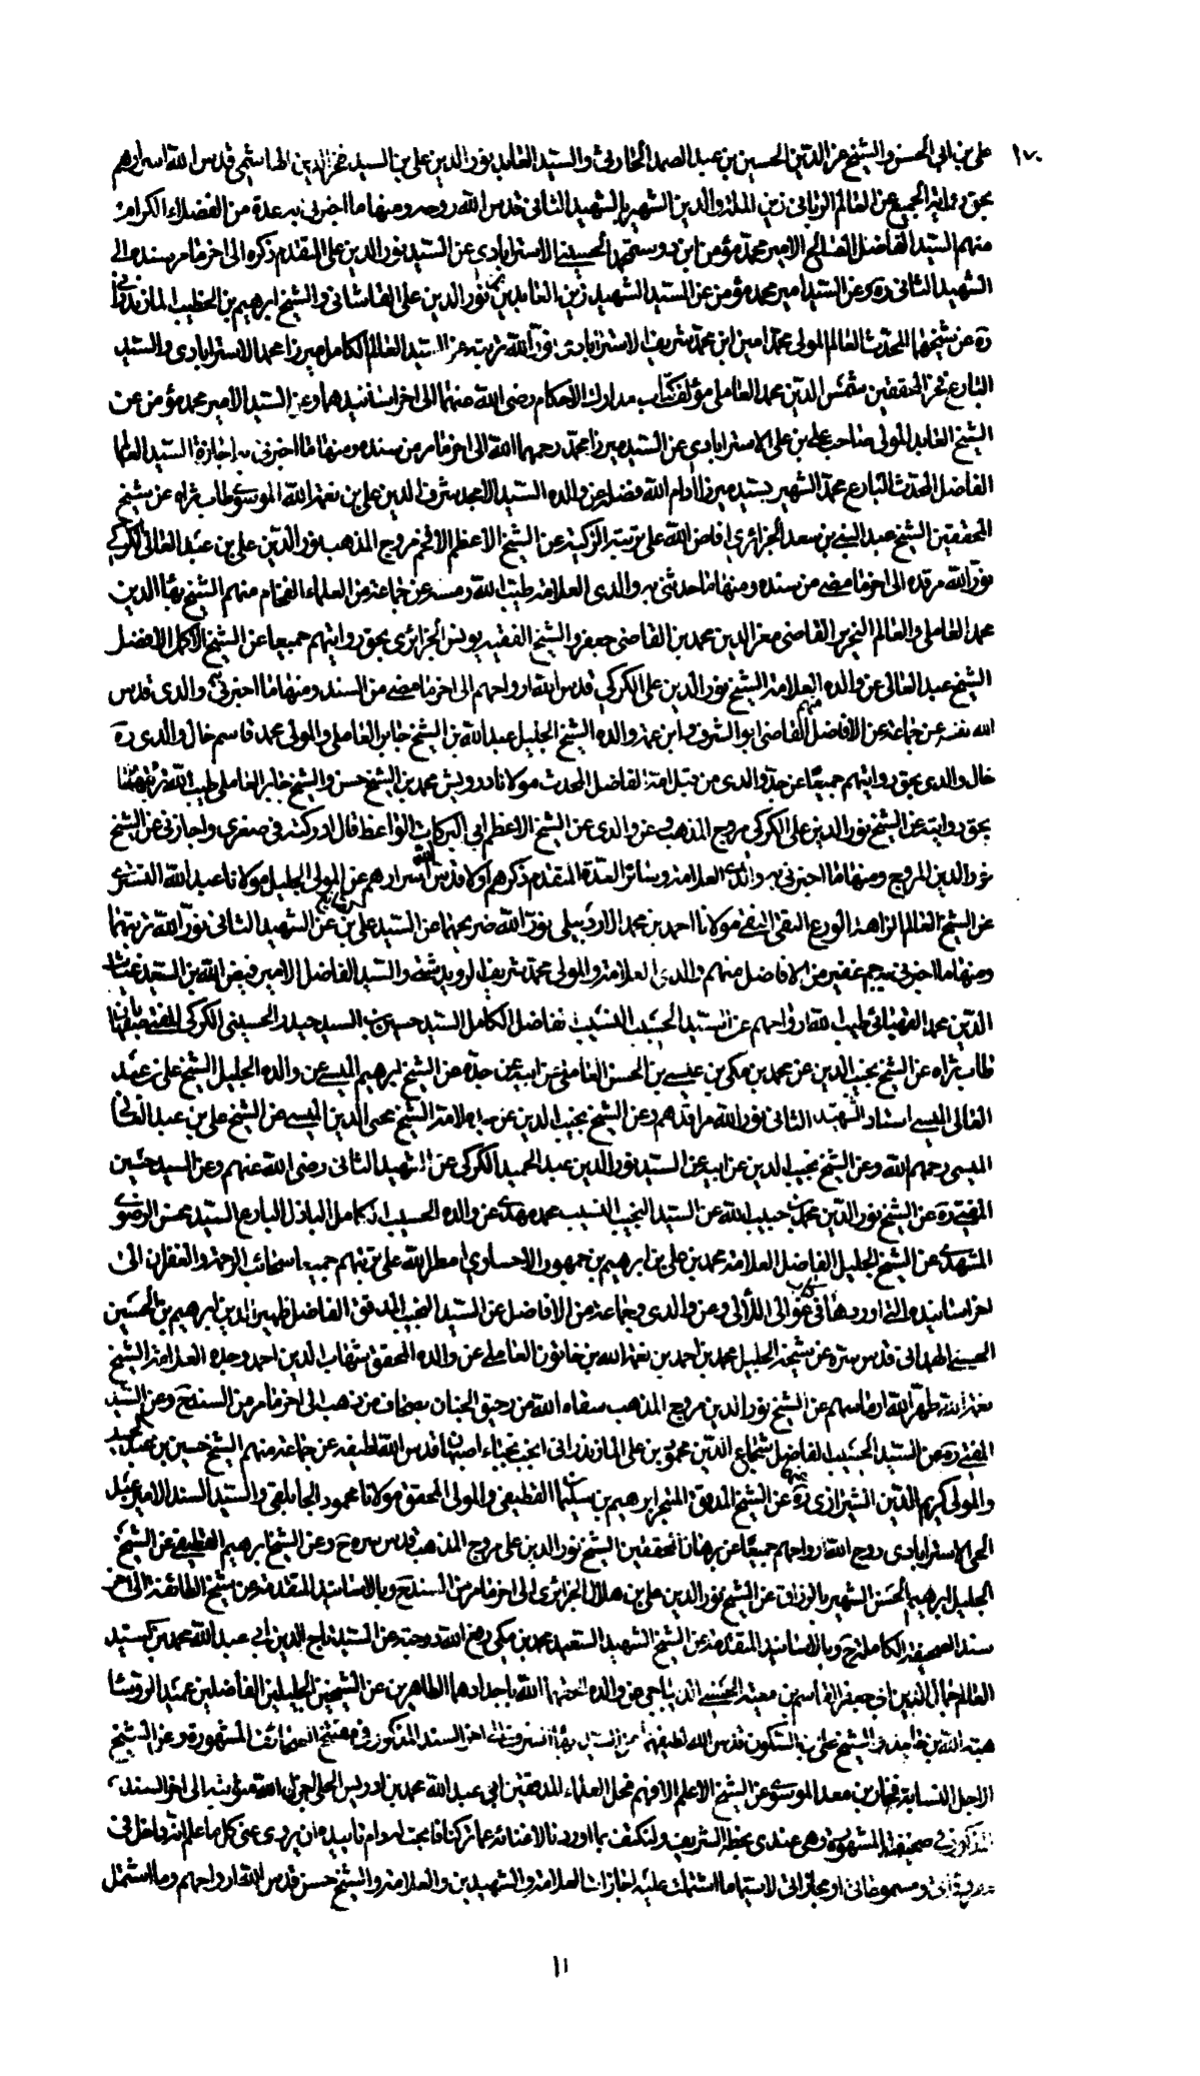 ١٧٠
علي بن ابي الحسن والشيخ عز الدين الحسين بن عبد الصمد الحارثي والسيد العابد نور الدين علي بن السيد فخر الدين الهاشمي قدس الله اسرارهم
بحق رواية الجميع عن العالم الرباني زين الملة والدين الشهير بالشهيد الثاني قدس الله روحه ومنها ما اخبرني به عدة من الفضلاء الكرام
منهم السيد الفاضل الصالح الامير محمد مؤمن ابن دوست محمد الحسيني الاسترابادي عن السيد نور الدين علي المتقدم ذكره الى اخر ما مر بسنده الى
الشهيد الثاني ره وعن السيد امير محمد مؤمن عن السيد الشهيد زين العابدين بن نور الدين علي القاشاني والشيخ ابرهيم بن الخطيب المازندراني
ره عن شيخهما المحدث العالم المولى محمد امين ابن محمد شريف الاسترابادي نور الله تربته عن السيد العالم الكامل ميرزا محمد الاسترابادي والسيد
البارع فخر المحققين شمس الدين محمد العاملي مؤلف كتاب مدارك الاحكام رضي الله عنهما الى اخر اسانيدهما وعن السيد الامير محمد مؤمن عن
الشيخ العابد المولى صاحب علي بن علي الاسترابادي عن السيد ميرزا محمد رحمهما الله الى اخر ما مر من سنده ومنها ما اخبرني به اجازة السيد العالم
الفاضل المحدث البارع محمد الشهير بسيد ميرزا ادام الله فضله عن والده السيد الامجد شرف الدين علي بن نعمة الله الموسوي طاب ثراه عن شيخ
المحققين الشيخ عبد النبي بن سعد الجزائري افاض الله على تربته الزكية عن الشيخ الاعظم الافخم مروج المذهب نور الدين علي بن عبد العالي الكركي
نور الله مرقده الى اخر ما مضى من سنده ومنها ما حدثني به والدي العلامة طيب الله رمسه عن جماعة من العلماء الفخام منهم الشيخ بهاء الدين
محمد العاملي والعالم النحرير القاضي معز الدين محمد بن القاضي جعفر والشيخ الفقيه يونس الجزائري بحق روايتهم جميعا عن الشيخ الاكمل الافضل
الشيخ عبد العالي عن والده العلامة الشيخ نور الدين علي الكركي قدس الله ارواحهم الى اخر ما مضى من السند ومنها ما اخبرني والدي قدس
الله نفسه عن جماعة من الافاضل منهم القاضي ابو الشرف وابن عمة والده الشيخ الجليل عبد الله بن الشيخ جابر العاملي والمولى محمد قاسم خال والدي ره
خال والدي بحق روايتهم جميعا عن جد والدي من قبل امه الفاضل المحدث مولانا درويش محمد بن الشيخ حسن والشيخ جابر العاملي طيب الله تربتهما
بحق روايته عن الشيخ نور الدين علي الكركي مروج المذهب وعن والدي عن الشيخ الاعظم ابي البركات الواعظ قال ادركته في صغري واجازني عن الشيخ
نور الدين المروج ومنها ما اخبرني به والدي العلامة وسائر العدة المتقدم ذكرهم اولا قدس الله اسرارهم عن المولى الجليل مولانا عبد الله التستري
عن الشيخ العالم الزاهد الورع التقي النقي مولانا احمد بن محمد الاردبيلي نور الله ضريحهما عن السيد علي بن الصايغ عن الشهيد الثاني نور الله تربتهما
ومنها ما اخبرني به جم غفير من الافاضل منهم والدي العلامة والمولى محمد شريف الرويدشتي والسيد الفاضل الامير فيض الله بن السيد غياث
الدين محمد القهبائي طيب الله ارواحهم عن السيد الحسيب النسيب الفاضل الكامل السيد حسين بن السيد حيدر الحسيني الكركي المفتي باصفهان
طاب ثراه عن الشيخ نجيب الدين عن محمد بن مكي بن عيسى بن الحسن العاملي عن ابيه عن جده عن الشيخ ابرهيم الميسي عن والده الجليل الشيخ علي بن عبد
العالي الميسي استاد الشهيد الثاني نور الله مراقدهم وعن الشيخ نجيب الدين عن جد امه الشيخ محيي الدين الميسي عن الشيخ علي بن عبد العالي
الميسي رحمهم الله وعن الشيخ نجيب الدين عن ابيه عن السيد نور الدين عبد الحميد الكركي عن الشهيد الثاني رضي الله عنهم وعن السيد حسين
المفتي ره عن الشيخ نور الدين محمد بن حبيب الله عن السيد النجيب النسيب محمد مهدي عن والده الحسيب الكامل الباذل البارع السيد محسن الرضوي
المشهدي عن الشيخ الجليل الفاضل العلامة محمد بن علي بن ابرهيم بن جمهور الاحساوي امطر الله على تربتهم جميعا سحائب الرحمة والغفران الى
اخر اسانيده التي اوردها في كتاب غوالي اللآلي وعن والدي وجماعة من الافاضل عن السيد النجيب المدقق الفاضل ظهير الدين ابرهيم بن الحسين
الحسيني الهمداني قدس سره عن شيخه الجليل محمد بن احمد بن نعمة الله بن خاتون العاملي عن والده المحقق شهاب الدين احمد وجده العلامة الشيخ
نعمة الله طهر الله ارماسهم عن الشيخ نور الدين مروج المذهب سقاه الله من رحيق الجنان بصحاف من ذهب الى اخر ما مر من السند ح وعن السيد
المفتي ره عن السيد الحسيب الفاضل شجاع الدين محمود بن علي المازندراني الجنب نجباء اصفهان قدس الله لطيفه عن جماعة منهم الشيخ حسين بن عبد الحميد
والمولى كريم الدين الشيرازي ره عن الشيخ المدقق المتبحر ابرهيم بن سليمان القطيفي والمولى المحقق مولانا محمود الجابلقي والسيد السند الامير عبد
الحي الاسترابادي روح الله ارواحهم جميعا عن برهان المحققين الشيخ نور الدين علي مروج المذهب قدس سره ح وعن الشيخ ابرهيم القطيفي عن الشيخ
الجليل ابرهيم بن الحسن الشهير بالوراق عن الشيخ نور الدين علي بن هلال الجزائري الى اخر ما مر من السند ح وبالاسانيد المتقدمة عن شيخ الطائفة الى اخر
سند الصحيفة الكاملة ح وبالاسانيد المتقدمة عن الشيخ الشهيد السعيد محمد بن مكي رفع الله درجته عن السيد تاج الدين ابي عبد الله محمد بن السيد
العالم جلال الدين ابي جعفر القاسم بن معية الحسيني الديباجي عن والده الحقهما الله باجدادهما الطاهرين عن الشيخين الجليلين الفاضلين عميد الرؤسا
هبة الله بن حامد والشيخ علي بن السكون قدس الله لطيفهما عن السيد بهاء الشرف الى اخر السند المذكور في مفتتح الصحائف المشهورة وعن الشيخ
الاجل النسابة فخار بن معد الموسوي عن الشيخ الاعلم الافهم فحل العلماء المدققين ابي عبد الله محمد بن ادريس الحلي اجزل الله مثوبته الى اخر السند
المذكور في صحيفته المشهورة وهي عندي بخطه الشريف ولنكتف بما اوردنا لاغنائه عما تركنا فابحت له دام تاييده ان يروي عني كل ما علم انه داخل في
مقروءاتي ومسموعاتي او مجازاتي لا سيما ما اشتملت عليه اجازات العلامة والشهيدين والعلامة والشيخ حسن قدس الله ارواحهم وما اشتمل
١١